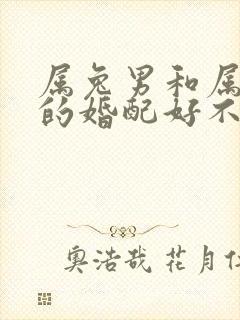 属兔男和属
的婚配好不
奥浩哉 花月仁